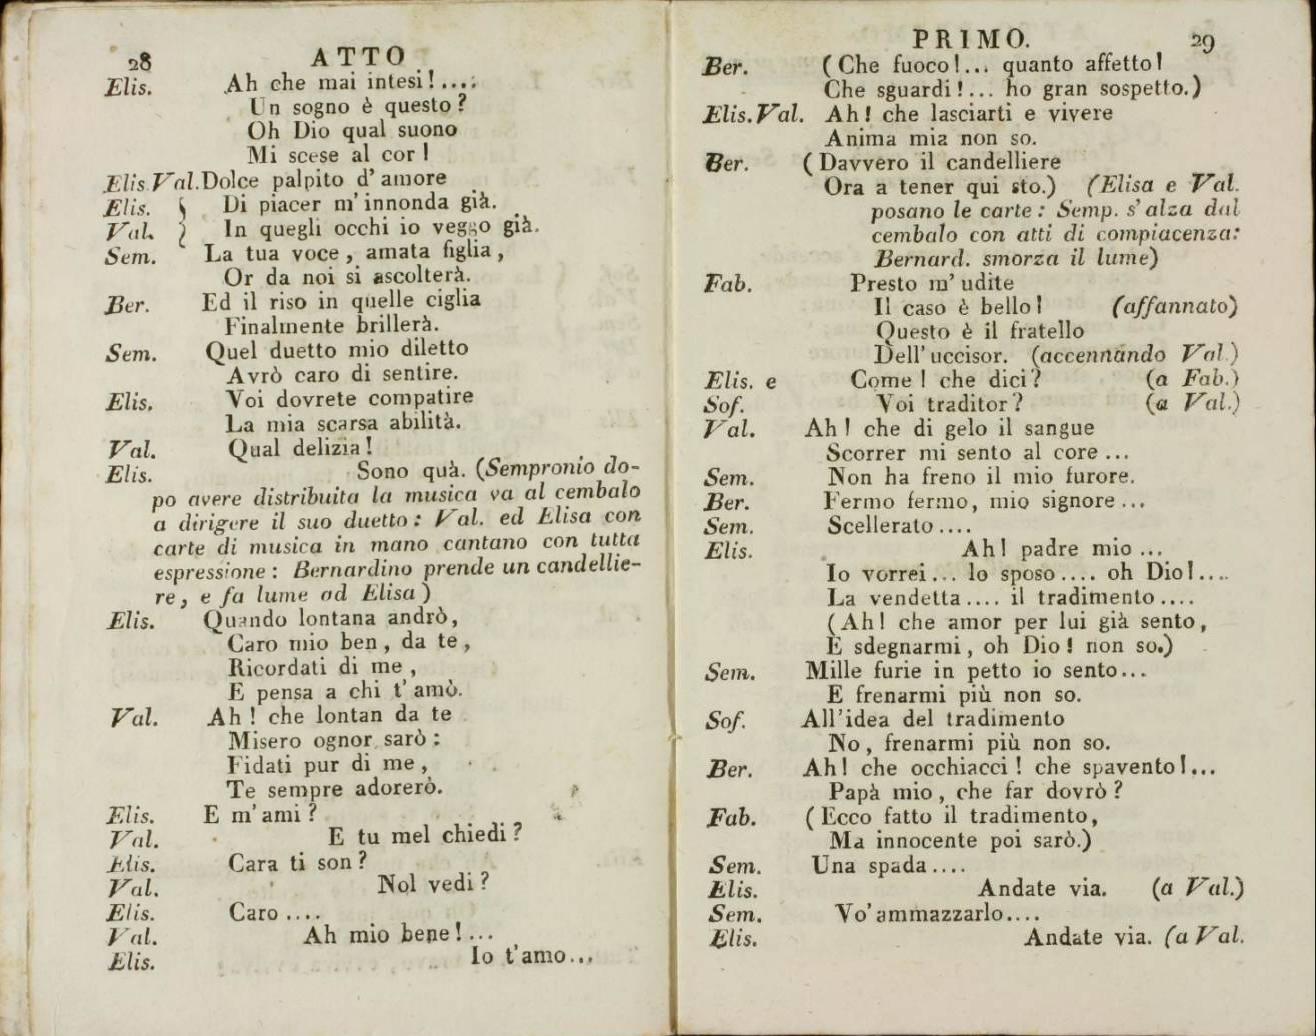 28 ATTO
Elis. Ah che mai intesi!....
Un sogno è questo?
Oh Dio qual suono
Mi scese al cor!
Elis Val. Dolce palpito d'amore
Elis. Di piacer m'innonda già.
Val. In quegli occhi io veggo già.
Sem. La tua voce, amata figlia,
Or da noi si ascolterà.
Ber. Ed il riso in quelle ciglia
Finalmente brillerà.
Sem. Quel duetto mio diletto
Avrò caro di sentire.
Elis. Voi dovrete compatire
La mia scarsa abilità.
Val. Qual delizia!
Elis. Sono quà. (Sempronio do-
po avere distribuita la musica va al cembalo
a dirigere il suo duetto: Val. ed Elisa con
carte di musica in mano cantano con tutta
espressione: Bernardino prende un candellie-
re, e fa lume ad Elisa)
Elis. Quando lontana andrò,
Caro mio ben, da te,
Ricordati di me,
E pensa a chi t'amò.
Val. Ah! che lontan da te
Misero ognor sarò:
Fidati pur di me,
Te sempre adorerò.
Elis. E m'ami?
Val. E tu mel chiedi?
Elis. Cara ti son?
Val. Nol vedi?
Elis. Caro....
Val. Ah mio bene!...
Elis. Io t'amo...
PRIMO. 29
Ber. (Che fuoco!... quanto affetto!
Che sguardi!... ho gran sospetto.)
Elis. Val. Ah! che lasciarti e vivere
Anima mia non so.
Ber. (Davvero il candelliere
Ora a tener qui sto.) (Elisa e Val.
posano le carte: Semp. s'alza dal
cembalo con atti di compiacenza:
Bernard. smorza il lume)
Fab. Presto m'udite
Il caso è bello! (affannato)
Questo è il fratello
Dell'uccisor. (accennando Val.)
Elis. e Come! che dici? (a Fab.)
Sof. Voi traditor? (a Val.)
Val. Ah! che di gelo il sangue
Scorrer mi sento al core...
Sem. Non ha freno il mio furore.
Ber. Fermo fermo, mio signore...
Sem. Scellerato....
Elis. Ah! padre mio...
Io vorrei... lo sposo.... oh Dio!....
La vendetta.... il tradimento....
(Ah! che amor per lui già sento,
E sdegnarmi, oh Dio! non so.)
Sem. Mille furie in petto io sento...
E frenarmi più non so.
Sof. All'idea del tradimento
No, frenarmi più non so.
Ber. Ah! che occhiacci! che spavento!...
Papà mio, che far dovrò?
Fab. (Ecco fatto il tradimento,
Ma innocente poi sarò.)
Sem. Una spada....
Elis. Andate via. (a Val.)
Sem. Vo' ammazzarlo....
Elis. Andate via. (a Val.